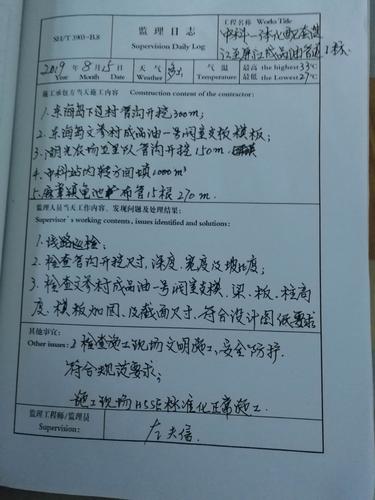 SH/T 3903-B.8
监 理 日 志
Supervision Daily Log
工程名称 Works Title
中科一体化配套湛
江至廉江成品油管道1标
2019 年 8 月 15 日
Year Month Date
天 气
Weather
气 温
Temperature
最高 the highest 33℃
最低 the Lowest 27℃
施工承包方当天施工内容 Construction content of the contractor:
1. 东海岛下边村管沟开挖300m;
2. 东海岛文参村成品油一号阀室支板模板;
3. 湖光农场五里队管沟开挖150m.
4. 中科站内粒子回填1000m³
5. 麻章镇 布管15根 270m.
监理人员当天工作内容、发现问题及处理结果:
Supervisor's working contents, issues identified and solutions:
1. 线路巡检;
2. 检查管沟开挖尺寸,深度.宽度及坡比度;
3. 检查文参村成品油一号阀室支模、梁、板、柱高
度、模板加固、及截面尺寸.符合设计图纸要求
其他事宜:
Other issues: 1 检查施工现场文明施工,安全防护.
符合规范要求;
施工现场HSSE标准化正常施工.
监理工程师/监理员
Supervision:
左夫信.